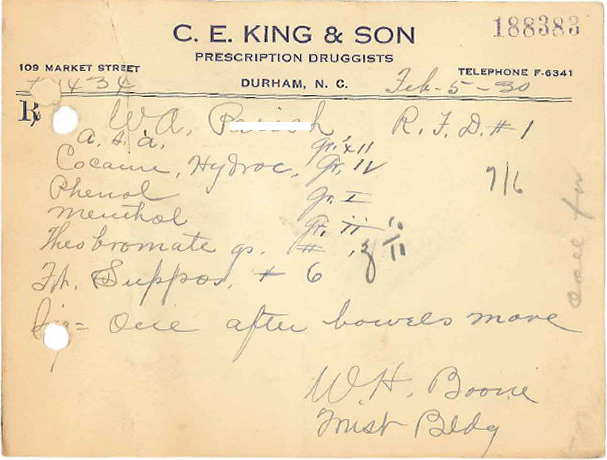 C. E. KING & SON
188383
PRESCRIPTION DRUGGISTS
109 MARKET STREET
TELEPHONE F-6341
DURHAM, N. C.
Feb-5-30
℞
W A. R. F. D. # 1
a. s. a. gr. xii
Cocaine, Hydroc, gr. IV
7/6
Phenol gr. I
Menthol gr. ii
Theobromate qs.
Ft. Suppos, # 6
Sig = One after bowels move
W. H. Boone
Trust Bldg
call for